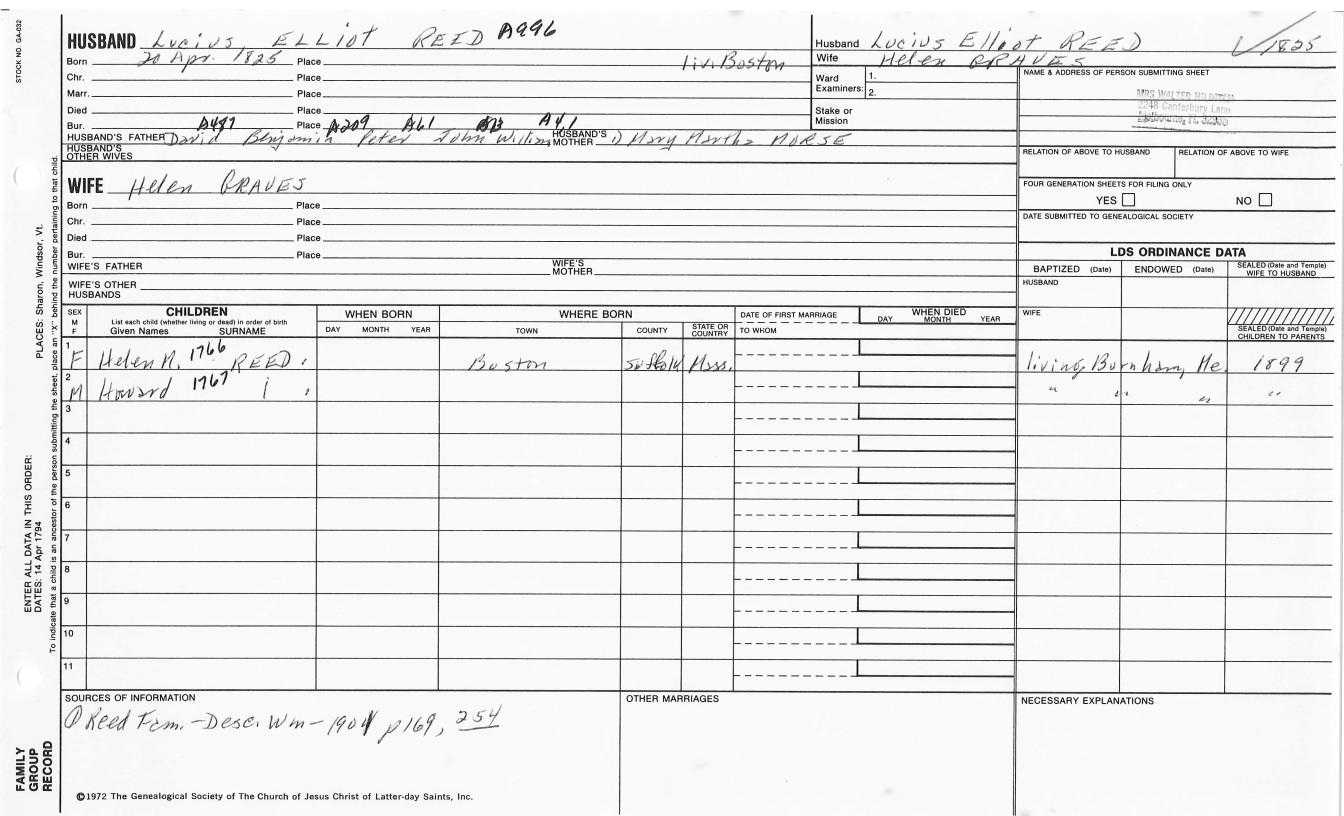 STOCK NO. GA-032
HUSBAND Lucius ELLIOT REED A996
Born 20 Apr. 1825 Place liv. Boston
Chr. Place
Marr. Place
Died Place
Bur. Place
A487 A209 A61 A13 A4,1
HUSBAND'S FATHER David Benjamin Peter John William HUSBAND'S MOTHER 1) Mary Martha MORSE
HUSBAND'S OTHER WIVES
Husband Lucius Elliot REED 1825
Wife Helen GRAVES
Ward Examiners: 1.
2.
Stake or Mission
NAME & ADDRESS OF PERSON SUBMITTING SHEET
MRS WALTER
2248 Canterbury Lane
RELATION OF ABOVE TO HUSBAND RELATION OF ABOVE TO WIFE
FOUR GENERATION SHEETS FOR FILING ONLY
YES NO
DATE SUBMITTED TO GENEALOGICAL SOCIETY
WIFE Helen GRAVES
Born Place
Chr. Place
Died Place
Bur. Place
WIFE'S FATHER WIFE'S MOTHER
WIFE'S OTHER HUSBANDS
LDS ORDINANCE DATA
BAPTIZED (Date) ENDOWED (Date) SEALED (Date and Temple) WIFE TO HUSBAND
HUSBAND
WIFE
SEALED (Date and Temple) CHILDREN TO PARENTS
SEX M F
CHILDREN
List each child (whether living or dead) in order of birth
Given Names SURNAME
WHEN BORN
DAY MONTH YEAR
WHERE BORN
TOWN COUNTY STATE OR COUNTRY
DATE OF FIRST MARRIAGE
TO WHOM
WHEN DIED
DAY MONTH YEAR
1 F Helen M. 1766 REED. Boston Suffolk Mass. living Burnham, Me. 1899
2 M Howard 1767 " " " "
3
4
5
6
7
8
9
10
11
SOURCES OF INFORMATION
① Reed Fam. - Desc. Wm - 1901 p169, 254
OTHER MARRIAGES
NECESSARY EXPLANATIONS
©1972 The Genealogical Society of The Church of Jesus Christ of Latter-day Saints, Inc.
FAMILY GROUP RECORD
ENTER ALL DATA IN THIS ORDER:
DATES: 14 Apr 1794
PLACES: Sharon, Windsor, Vt.
To indicate that a child is an ancestor of the person submitting the sheet, place an "X" behind the number pertaining to that child.